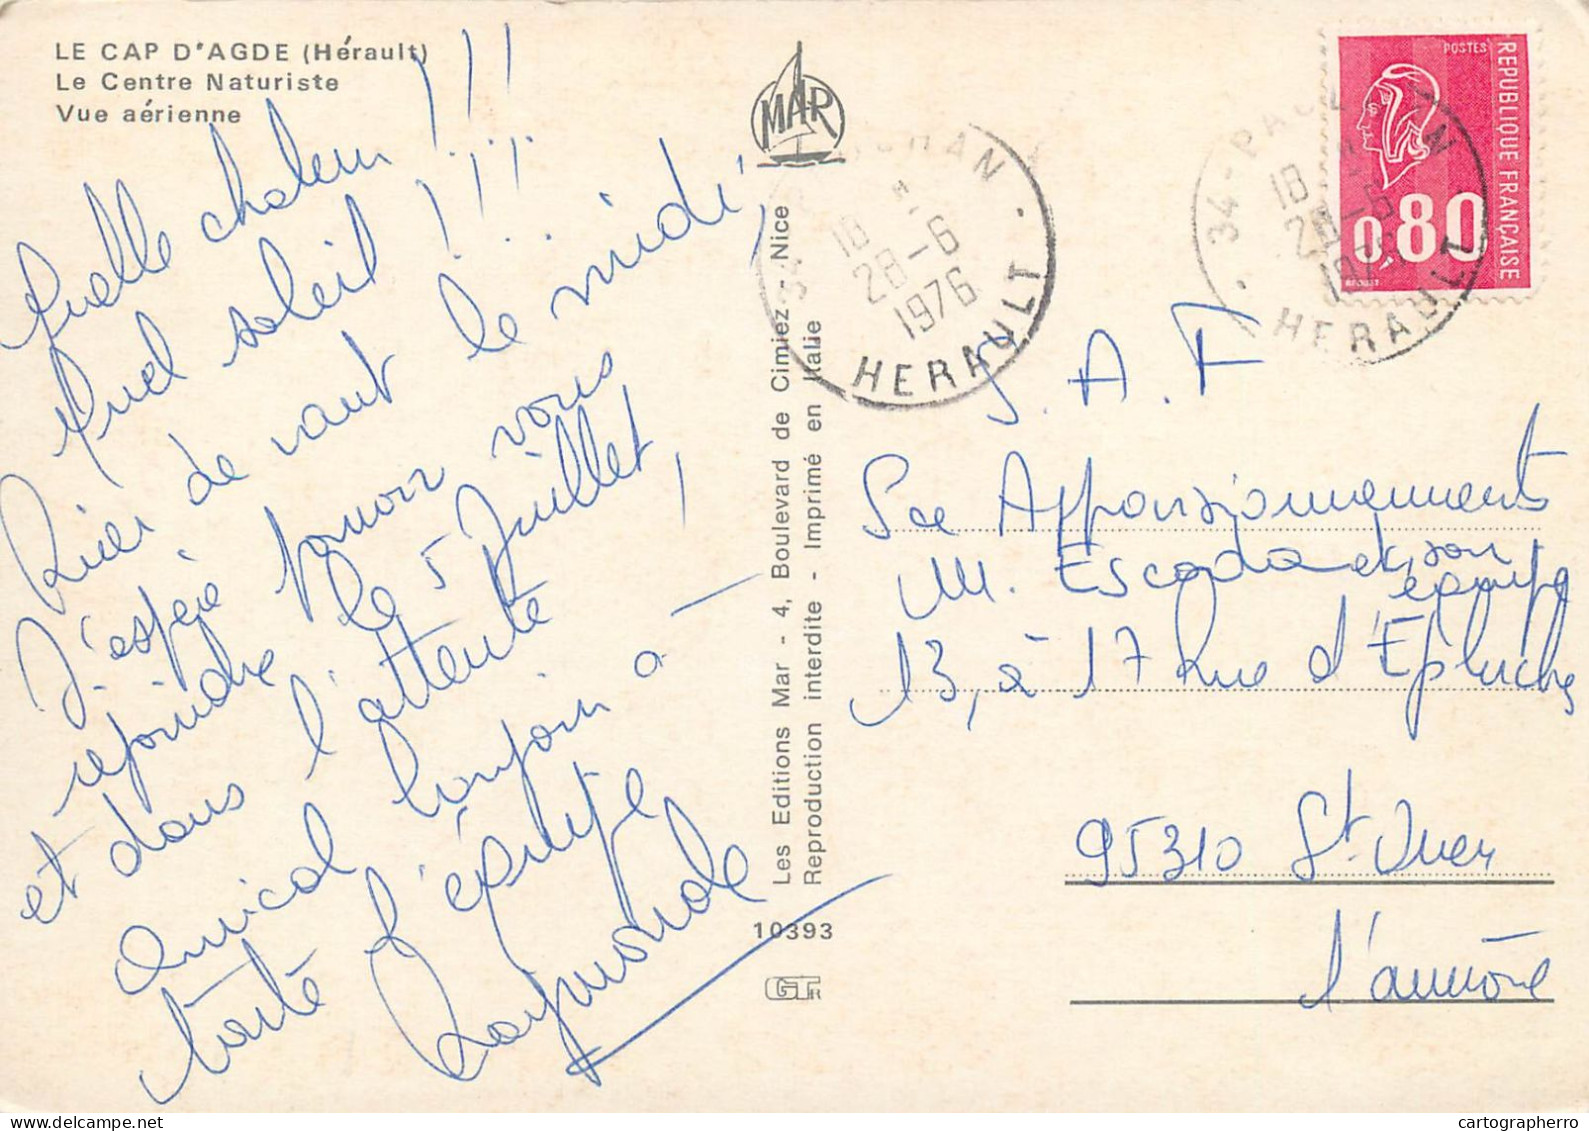 LE CAP D'AGDE (Hérault)
Le Centre Naturiste
Vue aérienne
Quelle chaleur !!!
Quel soleil !!!
Rien de vaut le midi,
J'espère pouvoir vous
rejoindre le 5 Juillet,
et dans l'attente
Amical bonjour à -
toute l'équipe
Raymonde
MAR
Les Editions Mar - 4, Boulevard de Cimiez - Nice
Reproduction interdite - Imprimé en Italie
10393
GT
34
18
28-6
1976
HERAULT
34-PAUL
18
28-6
1976
HERAULT
POSTES
REPUBLIQUE FRANÇAISE
0,80
S.A.F
Sce Approvisionnements
M. Escoda et son
équipe
13, à 17 Rue d'Epluches
95310 St-Ouen
l'aumône
cartographerro